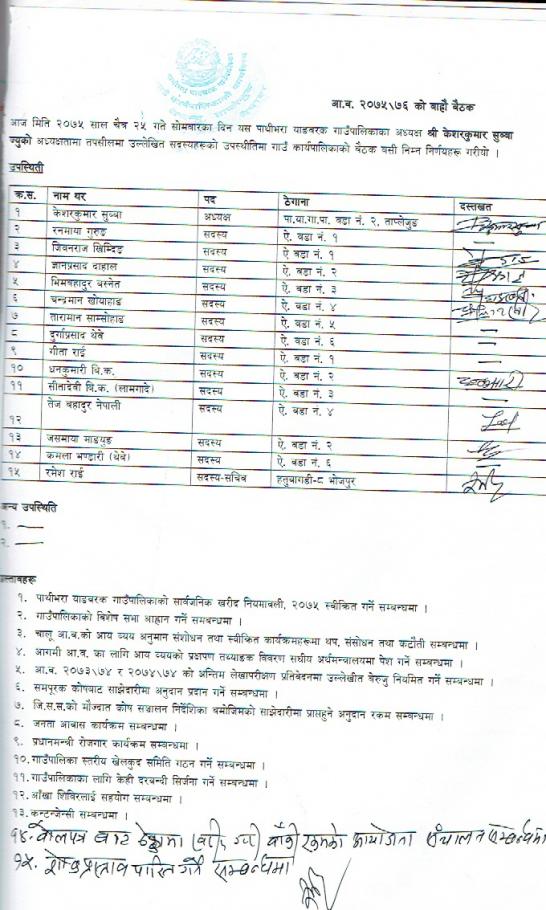 आ.व. २०७५\७६ को बाह्रौ बैठक
आज मिति २०७५ साल चैत्र २५ गते सोमवारका दिन यस पाथीभरा याङवरक गाउँपालिकाका अध्यक्ष श्री केशरकुमार सुब्बा
ज्युको अध्यक्षतामा तपसीलमा उल्लेखित सदस्यहरूको उपस्थीतिमा गाउँ कार्यपालिकाको बैठक वसी निम्न निर्णयहरू गरीयो ।
उपस्थिती
क्र.स. नाम थर पद ठेगाना दस्तखत
१ केशरकुमार सुब्बा अध्यक्ष पा.या.गा.पा. वडा नं. २, ताप्लेजुङ
२ रनमाया गुरुङ सदस्य ऐ. वडा नं. १
३ जिवनराज खिम्दिङ सदस्य ऐ. वडा नं. १
४ ज्ञानप्रसाद दाहाल सदस्य ऐ. वडा नं. २
५ भिमबहादुर बस्नेत सदस्य ऐ. वडा नं. ३
६ चन्द्रमान खोयाहाङ सदस्य ऐ. वडा नं. ४
७ तारामान साम्सोहाङ सदस्य ऐ. वडा नं. ५
८ दुर्गाप्रसाद थेवे सदस्य ऐ. वडा नं. ६
९ गीता राई सदस्य ऐ. वडा नं. १
१० धनकुमारी बि.क. सदस्य ऐ. वडा नं. २
११ सीतादेवी बि.क. (लामगादे) सदस्य ऐ. वडा नं. ३
१२ तेज बहादुर नेपाली सदस्य ऐ. वडा नं. ४
१३ जसमाया माङयुङ सदस्य ऐ. वडा नं. २
१४ कमला भण्डारी (थेवे) सदस्य ऐ. वडा नं. ६
१५ रमेश राई सदस्य-सचिब हतुवागढी-८ भोजपुर
अन्य उपस्थिति
१.
२.
प्रस्तावहरू
१. पाथीभरा याङवरक गाउँपालिकाको सार्वजनिक खरीद नियमावली, २०७५ स्वीकित गर्ने सम्बन्धमा ।
२. गाउँपालिकाको बिशेष सभा आह्वान गर्ने समबन्धमा ।
३. चालू आ.ब.को आय व्यय अनुमान संशोधन तथा स्वीकित कार्यक्रमहरूमा थप, संसोधन तथा कटौती सम्बन्धमा ।
४. आगमी आ.व. का लागि आय व्ययको प्रक्षपण तथ्याङक विवरण संघीय अर्थमन्त्रालयमा पेश गर्ने सम्बन्धमा ।
५. आ.ब. २०७३\७४ र २०७४\७५ को अन्तिम लेखापरीक्षण प्रतिबेदनमा उल्लेखीत वेरुजु नियमित गर्ने सम्बन्धमा ।
६. समपूरक कोषवाट साझेदारीमा अनुदान प्रदान गर्ने सम्बन्धमा ।
७. जि.स.स.को मौज्दात कोष सञ्चालन निर्देशिका बमोजिमको साझेदारीमा प्राप्तहुने अनुदान रकम सम्बन्धमा ।
८. जनता आबास कार्यक्रम सम्बन्धमा ।
९. प्रधानमन्त्री रोजगार कार्यक्रम सम्बन्धमा ।
१०. गाउँपालिका स्तरीय खेलकुद समिति गठन गर्ने सम्बन्धमा ।
११. गाउँपालिकाका लागि केही दरबन्दी सिर्जना गर्ने सम्बन्धमा ।
१२. आँखा शिविरलाई सहयोग सम्बन्धमा ।
१३. कन्टन्जेन्सी सम्बन्धमा ।
१४. बोलपत्र बाट ठेक्कामा बाँकी रकमको आयोजना संचालन सम्बन्धमा
१५. शोक प्रस्ताव पारित गर्ने सम्बन्धमा